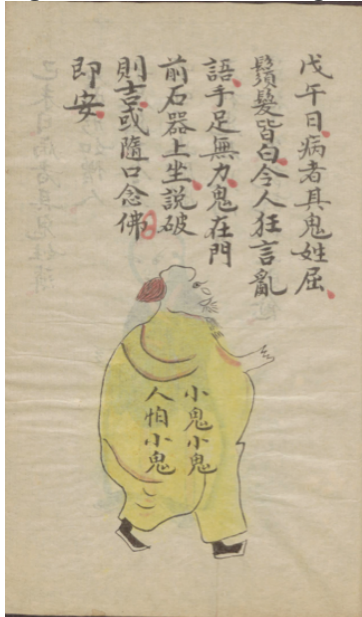 戊午日病者其鬼姓屈
鬚髮皆白令人狂言亂
語手足無力鬼在門
前石器上坐説破
則吉或隨口念佛
即安
小鬼小鬼
人怕小鬼